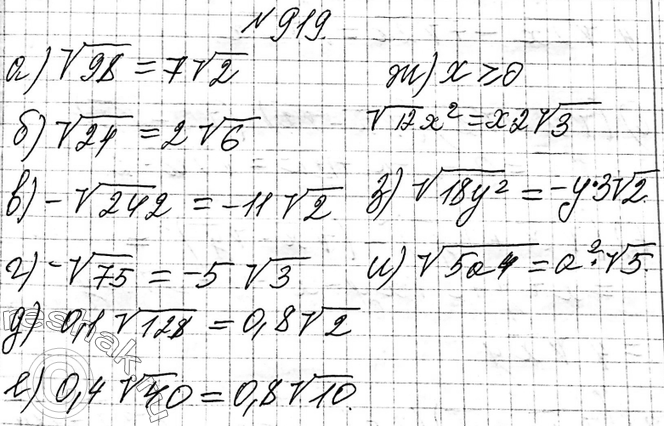 №919.
а) √98 = 7√2
б) √24 = 2√6
в) -√242 = -11√2
г) -√75 = -5√3
д) 0,1√128 = 0,8√2
е) 0,4√40 = 0,8√10.
ж) x ≥ 0
√12x² = x2√3
з) √18y² = -y·3√2.
и) √5a4 = a²·√5.